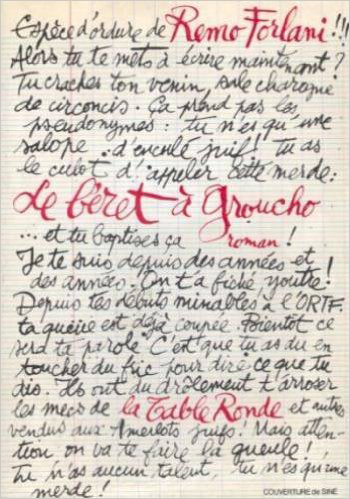 Espèce d'ordure de Remo Forlani !!!
Alors tu te mets à écrire maintenant ?
Tu craches ton venin, sale charogne
de circoncis. Ça prend pas les
pseudonymes : tu n'es qu'une
salope d'enculé juif ! tu as
le culot d'appeler cette merde :
Le béret à Groucho
... et tu baptises ça roman !
Je te suis depuis des années et
des années. On t'a fiché, youtre !
Depuis tes débuts minables à l'ORTF.
ta queue est déjà coupée. Bientôt ce
sera ta parole. C'est que tu as du en
toucher du fric pour dire ce que tu
dis. Ils ont du drôlement t'arroser
les mecs de la Table Ronde et autres
vendus aux Amerlots juifs ! Mais atten-
tion on va te faire la gueule !
tu n'as aucun talent, tu n'es qu'une
merde !
COUVERTURE de SINÉ